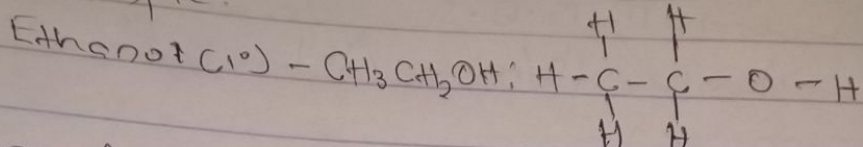 H H
Ethanol (1°) - CH₃CH₂OH; H - C - C - O - H
H H